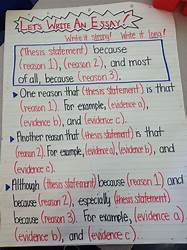 LETS WRITE AN ESSAY!
Write strong! Write it long!
(thesis statement) because
(reason 1), (reason 2), and most
of all, because (reason 3).
One reason that (thesis statement) is that
(reason 1). For example, (evidence a),
(evidence b), and (evidence c).
Another reason that (thesis statement) is that
(reason 2). For example, (evidence a), (evidence
b), and (evidence c).
Although (thesis statement) because (reason 1) and
because (reason 2), especially (thesis statement)
because (reason 3). For example, (evidence a)
(evidence b), and (evidence c).